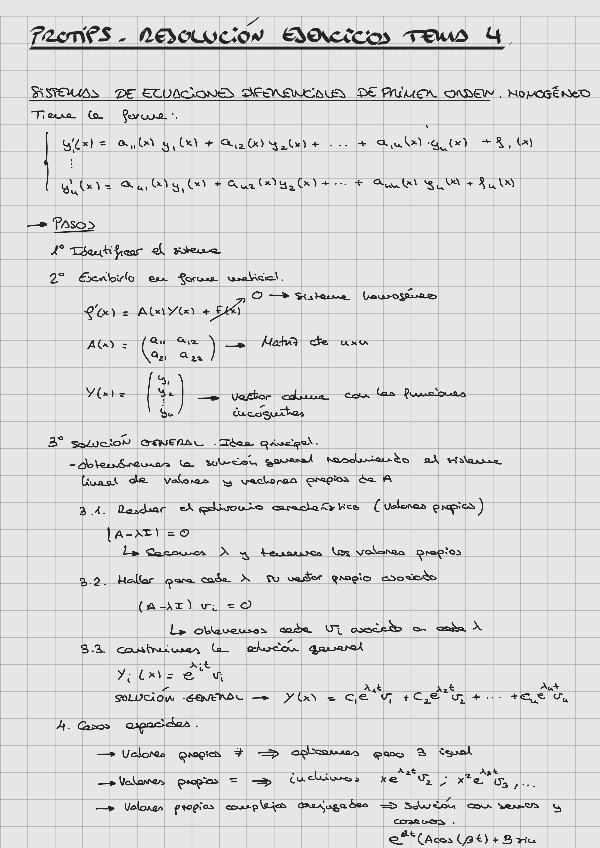 PROTIPS - RESOLUCIÓN EJERCICIOS TEMA 4
SISTEMAS DE ECUACIONES DIFERENCIALES DE PRIMER ORDEN. HOMOGÉNEO
Tiene la forma:
y₁'(x) = a₁₁(x) y₁(x) + a₁₂(x) y₂(x) + ... + a₁ₙ(x)·yₙ(x) + f₁(x)
⋮
yₙ'(x) = aₙ₁(x) y₁(x) + aₙ₂(x) y₂(x) + ... + aₙₙ(x) yₙ(x) + fₙ(x)
→ PASOS
1º Identificar el sistema
2º Escribirlo en forma matricial.
Y'(x) = A(x) Y(x) + F(x) 0 → sistema homogéneo
A(x) = (a₁₁ a₁₂ / a₂₁ a₂₂) → Matriz de nxn
Y(x) = (y₁ y₂ ⋮ yₙ) → vector columna con las funciones
incógnitas
3º SOLUCIÓN GENERAL. Idea principal.
- obtendremos la solución general resolviendo el sistema
lineal de valores y vectores propios de A
3.1. Resolver el polinomio característico (valores propios)
|A-λI| = 0
↳ Sacamos λ y tenemos los valores propios
3.2. Hallar para cada λ su vector propio asociado
(A-λI) vᵢ = 0
↳ obtenemos cada vᵢ asociado a cada λ
3.3 construimos la solución general
Yᵢ(x) = e^λᵢt vᵢ
SOLUCIÓN GENERAL → Y(x) = C₁e^λ₁t v₁ + C₂e^λ₂t v₂ + ... + Cₙe^λₙt vₙ
4. Casos especiales.
→ Valores propios ≠ ⇒ aplicamos paso 3 igual
→ Valores propios = ⇒ incluimos xe^λ₂t v₂ ; x²e^λ₃t v₃, ...
→ Valores propios complejos conjugados ⇒ Solución con senos y
cosenos.
e^αt (A cos(βt) + B sin